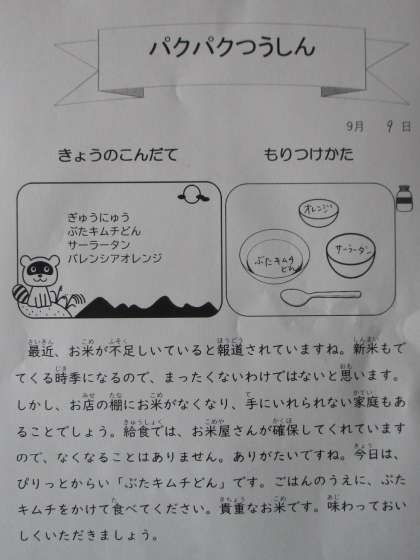 パクパクつうしん
9月 9日
きょうのこんだて
もりつけかた
ぎゅうにゅう
ぶたキムチどん
サーラータン
バレンシアオレンジ
オレンジ
ぶたキムチ
どん
サーラータン
最近、お米が不足しいていると報道されていますね。新米もで
てくる時季になるので、まったくないわけではないと思います。
しかし、お店の棚にお米がなくなり、手にいれられない家庭もあ
ることでしょう。給食では、お米屋さんが確保してくれています
ので、なくなることはありません。ありがたいですね。今日は、
ぴりっとからい「ぶたキムチどん」です。ごはんのうえに、ぶた
キムチをかけて食べてください。貴重なお米です。味わっておい
しくいただきましょう。